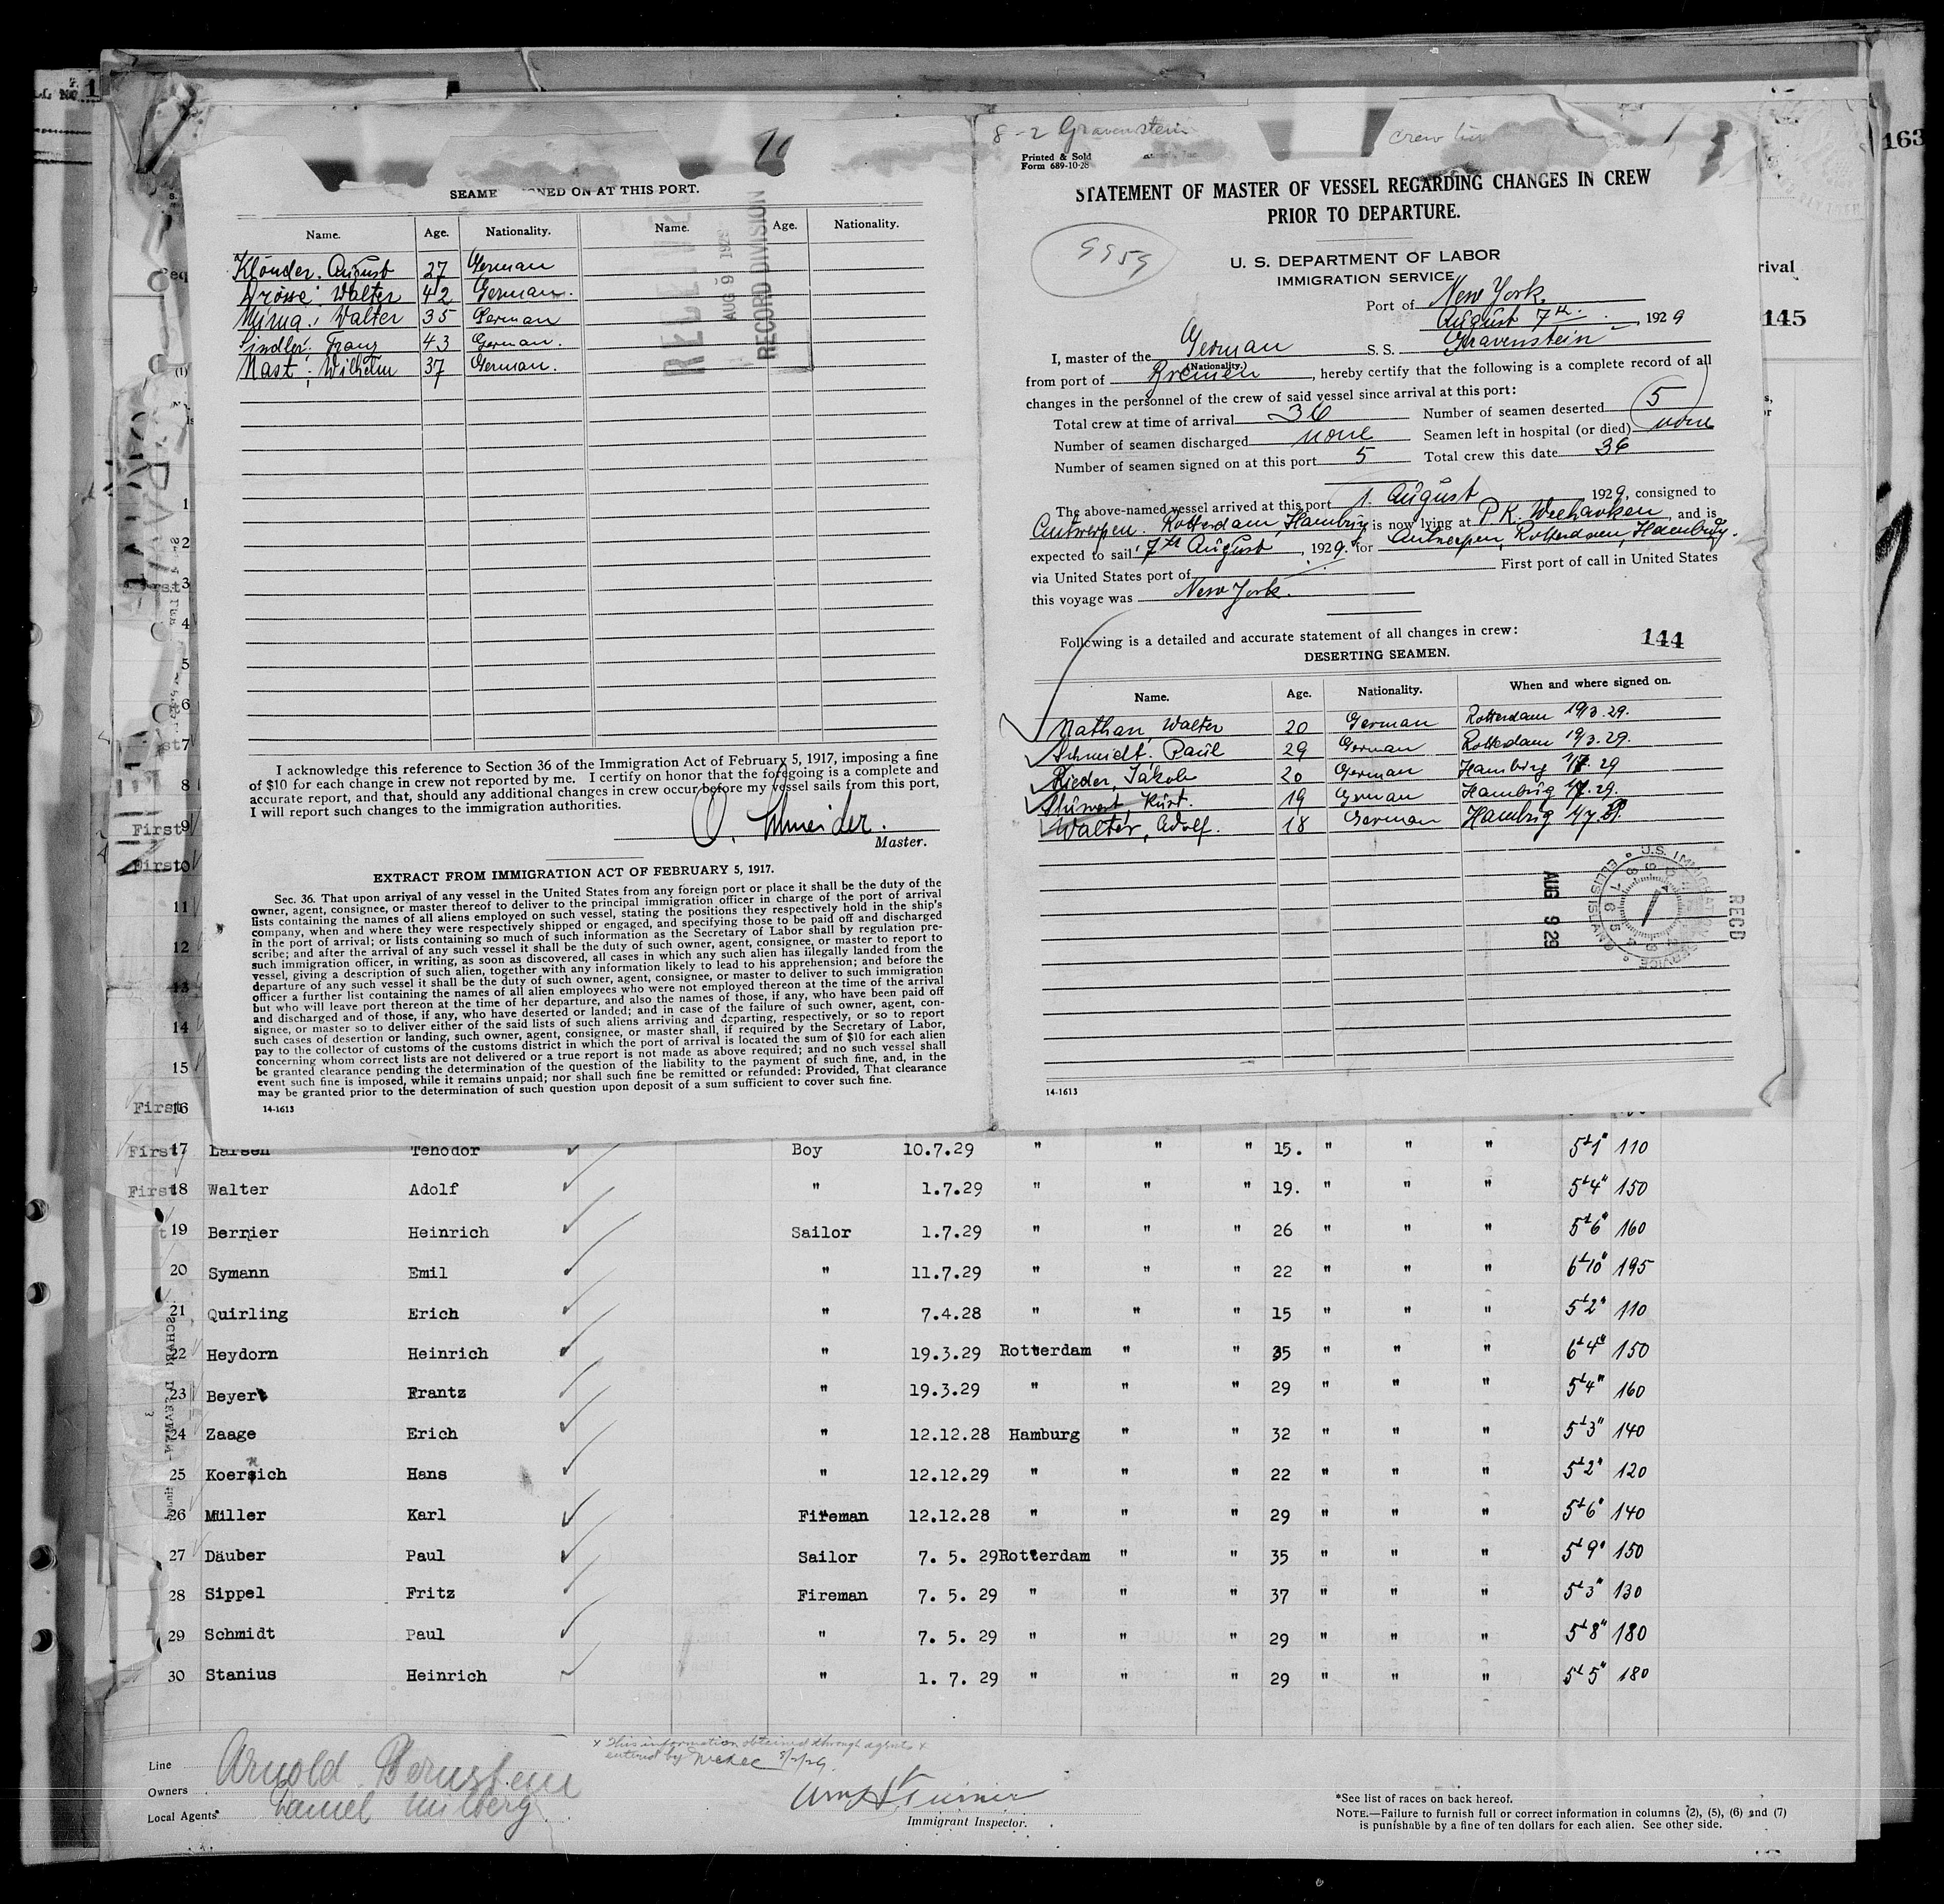 163
145
rival
8-2 Gravenstein
crew list
Printed & Sold
Form 689-10-28
STATEMENT OF MASTER OF VESSEL REGARDING CHANGES IN CREW
PRIOR TO DEPARTURE.
9959
U. S. DEPARTMENT OF LABOR
IMMIGRATION SERVICE
Port of New York.
August 7th. , 1929
I, master of the German S. S. Gravenstein
(Nationality.)
from port of Bremen , hereby certify that the following is a complete record of all
changes in the personnel of the crew of said vessel since arrival at this port:
Total crew at time of arrival 36 Number of seamen deserted 5
Number of seamen discharged none Seamen left in hospital (or died) none
Number of seamen signed on at this port 5 Total crew this date 36
The above-named vessel arrived at this port 1. August 1929, consigned to
Antwerpen. Rotterdam, Hamburg is now lying at P.K. Weehawken , and is
expected to sail 7th August , 1929. for Antwerpen, Rotterdam, Hamburg.
via United States port of First port of call in United States
this voyage was New York.
Following is a detailed and accurate statement of all changes in crew:
144
DESERTING SEAMEN.
Name. Age. Nationality. When and where signed on.
Nathan, Walter 20 German Rotterdam 19/3.29.
Schmidt. Paul 29 German Rotterdam 19/3.29.
Rieder, Jakob 20 German Hamburg 1/7. 29
Kurt. 19 German Hamburg 1/7.29.
Walter, Adolf. 18 German Hamburg 1/7.29.
AUG 9 29
U.S. IMMIGRATION SERVICE
ELLIS ISLAND
RECD
14-1613
SEAME NED ON AT THIS PORT.
Name. Age. Nationality. Name. Age. Nationality.
Klönder. August 27 German
Drösse: Walter 42 German.
Walter 35 German
Franz 43 German.
Mast; Wilhelm 37 German.
AUG 9 1929
RECORD DIVISION
I acknowledge this reference to Section 36 of the Immigration Act of February 5, 1917, imposing a fine
of $10 for each change in crew not reported by me. I certify on honor that the foregoing is a complete and
accurate report, and that, should any additional changes in crew occur before my vessel sails from this port,
I will report such changes to the immigration authorities.
O. Schneider.
Master.
EXTRACT FROM IMMIGRATION ACT OF FEBRUARY 5, 1917.
Sec. 36. That upon arrival of any vessel in the United States from any foreign port or place it shall be the duty of the
owner, agent, consignee, or master thereof to deliver to the principal immigration officer in charge of the port of arrival
lists containing the names of all aliens employed on such vessel, stating the positions they respectively hold in the ship's
company, when and where they were respectively shipped or engaged, and specifying those to be paid off and discharged
in the port of arrival; or lists containing so much of such information as the Secretary of Labor shall by regulation pre-
scribe; and after the arrival of any such vessel it shall be the duty of such owner, agent, consignee, or master to report to
such immigration officer, in writing, as soon as discovered, all cases in which any such alien has illegally landed from the
vessel, giving a description of such alien, together with any information likely to lead to his apprehension; and before the
departure of any such vessel it shall be the duty of such owner, agent, consignee, or master to deliver to such immigration
officer a further list containing the names of all alien employees who were not employed thereon at the time of the arrival
but who will leave port thereon at the time of her departure, and also the names of those, if any, who have been paid off
and discharged and of those, if any, who have deserted or landed; and in case of the failure of such owner, agent, con-
signee, or master so to deliver either of the said lists of such aliens arriving and departing, respectively, or so to report
such cases of desertion or landing, such owner, agent, consignee, or master shall, if required by the Secretary of Labor,
pay to the collector of customs of the customs district in which the port of arrival is located the sum of $10 for each alien
concerning whom correct lists are not delivered or a true report is not made as above required; and no such vessel shall
be granted clearance pending the determination of the question of the liability to the payment of such fine, and, in the
event such fine is imposed, while it remains unpaid; nor shall such fine be remitted or refunded: Provided, That clearance
may be granted prior to the determination of such question upon deposit of a sum sufficient to cover such fine.
14-1613
1
2
3
4
5
6
7
8
First 9
First 10
11
12
13
14
15
First 16
First 17 Larsen Tehodor Boy 10.7.29 " " " 15. " " " 5'1" 110
First 18 Walter Adolf " 1.7.29 " " " 19. " " " 5'4" 150
19 Berrier Heinrich Sailor 1.7.29 " " " 26 " " " 5'6" 160
20 Symann Emil " 11.7.29 " " " 22 " " " 6'10" 195
21 Quirling Erich " 7.4.28 " " " 15 " " " 5'2" 110
22 Heydorn Heinrich " 19.3.29 Rotterdam " " 35 " " " 6'4" 150
23 Beyer Frantz " 19.3.29 " " " 29 " " " 5'4" 160
24 Zaage Erich " 12.12.28 Hamburg " " 32 " " " 5'3" 140
25 Koersich Hans " 12.12.29 " " " 22 " " " 5'2" 120
26 Müller Karl Fireman 12.12.28 " " " 29 " " " 5'6" 140
27 Däuber Paul Sailor 7. 5. 29 Rotterdam " " 35 " " " 5'9" 150
28 Sippel Fritz Fireman 7. 5. 29 " " " 37 " " " 5'3" 130
29 Schmidt Paul " 7. 5. 29 " " " 29 " " " 5'8" 180
30 Stanius Heinrich " 1. 7. 29 " " " 29 " " " 5'5" 180
x This information obtained through agents x
entered by 8/2/29.
Line Arnold Bernstein
Owners
Local Agents Daniel Milberg
Immigrant Inspector.
*See list of races on back hereof.
NOTE.—Failure to furnish full or correct information in columns (2), (5), (6) and (7)
is punishable by a fine of ten dollars for each alien. See other side.